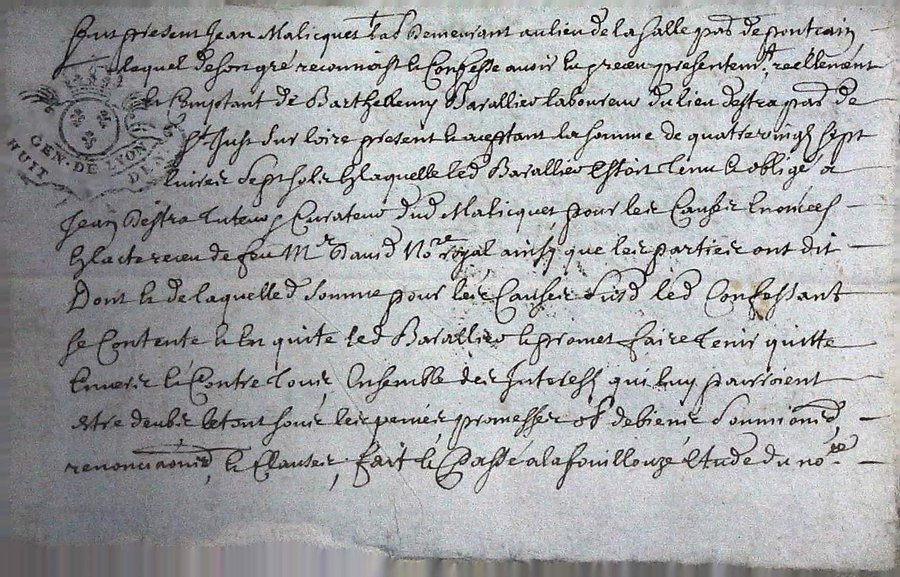 Fut present Jean Malicquet demeurant au lieu de la salle par. de pontcain
lequel de son gré reconnoist & Confesse avoir eu & receu presentemt reellement
& Comptant de Barthellemy Barallier laboureur du lieu destra par. de
St Just sur loire present & aceptant la somme de quatre vingt sept
livres sept sols En laquelle led Barallier Estoit tenu & obligé a
Jean Destra tuteur & Curateur dud Malicquet pour les Causes Enoncees
En lacte receu de feu Mr David Nore royal ainsy que les parties ont dit
Dont & de laquelled somme pour les Causes susd led Confessant
se Contente & En quite led Barallier & promet faire tenir quitte
Envers & Contre tous, Ensemble des Interests qui luy pourroient
estre deubs le tout sous les peines promesses obl de biens soumissions,
renonciations, & Clauses, fait & Passé a la fouillouze Etude du nore
GEN. DE LYON
HUIT DEN